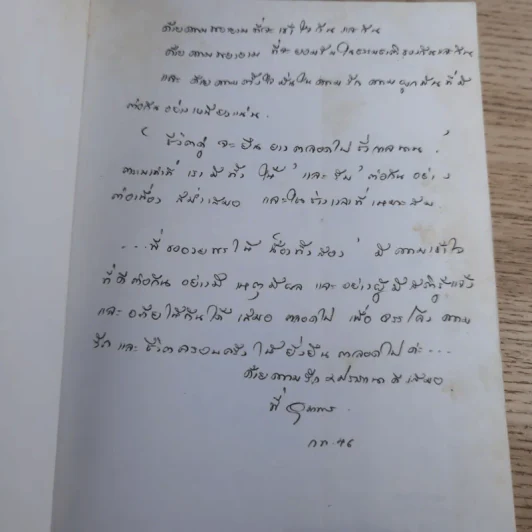 ด้วยความพยายามที่จะเข้าใจกัน และกัน
ด้วยความพยายาม ที่จะยอมรับในธรรมชาติของกันและกัน
และ ด้วยความตั้งใจมั่นในความรัก ความผูกพัน ที่มี
ต่อกันอย่างเหนียวแน่น.
" ชีวิตคู่ จะยืน ยาวตลอดไป ชั่วกาลนาน "
ตราบเท่าที่ เรา มีทั้ง 'ให้' และ 'รับ' ต่อกัน อย่าง
ต่อเนื่อง สม่ำเสมอ และในช่วงเวลาที่เหมาะสม
...พี่ขออวยพรให้ น้องทั้งสอง มีความเข้าใจ
ที่ดีต่อกัน อย่างมี เหตุมีผล และ อย่างผู้มีสติรู้แจ้ง
และ อภัยให้กันได้ เสมอ ตลอดไป เพื่อ จรรโลง ความ
รัก และ ชีวิตครอบครัว ให้ยั่งยืน ตลอดไป ค่ะ...
ด้วยความรัก ปรารถนาดีเสมอ
พี่
กค. ๔๖